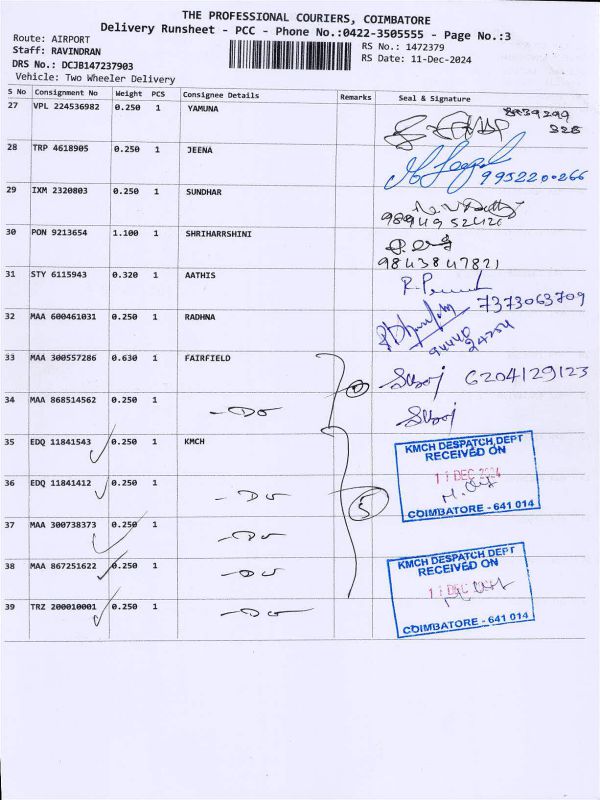 THE PROFESSIONAL COURIERS, COIMBATORE
Delivery Runsheet - PCC - Phone No.:0422-3505555 - Page No.:3
Route: AIRPORT
Staff: RAVINDRAN
RS No.: 1472379
DRS No.: DCJB147237903
RS Date: 11-Dec-2024
Vehicle: Two Wheeler Delivery
S No Consignment No Weight PCS Consignee Details Remarks Seal & Signature
27 VPL 224536982 0.250 1 YAMUNA
28 TRP 4618905 0.250 1 JEENA
9952200266
29 IXM 2320803 0.250 1 SUNDHAR
30 PON 9213654 1.100 1 SHRIHARRSHINI
9843847821
31 STY 6115943 0.320 1 AATHIS
32 MAA 600461031 0.250 1 RADHNA
7373063709
33 MAA 300557286 0.630 1 FAIRFIELD
6204129123
34 MAA 868514562 0.250 1 -Do-
35 EDQ 11841543 0.250 1 KMCH
KMCH DESPATCH DEPT
RECEIVED ON
11 DEC 2024
COIMBATORE - 641 014
36 EDQ 11841412 0.250 1 -Do-
5
37 MAA 300738373 0.250 1 -Do-
38 MAA 867251622 0.250 1 -Do-
KMCH DESPATCH DEPT
RECEIVED ON
11 DEC 2024
COIMBATORE - 641 014
39 TRZ 200010001 0.250 1 -Do-